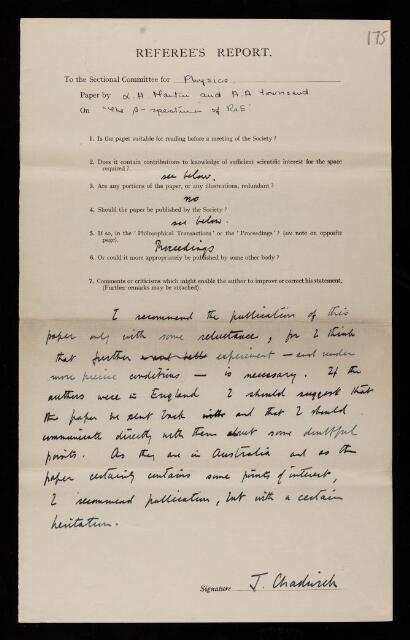 175
REFEREE'S REPORT.
To the Sectional Committee for Physics.
Paper by L.H. Martin and A.A. Townsend
On "The β-spectrum of RaE"
1. Is the paper suitable for reading before a meeting of the Society?
2. Does it contain contributions to knowledge of sufficient scientific interest for the space
required?
see below.
3. Are any portions of the paper, or any illustrations, redundant?
no
4. Should the paper be published by the Society?
see below.
5. If so, in the 'Philosophical Transactions' or the 'Proceedings'? (see note on opposite
page).
Proceedings
6. Or could it more appropriately be published by some other body?
7. Comments or criticisms which might enable the author to improve or correct his statement,
(Further remarks may be attached).
I recommend the publication of this
paper only with some reluctance, for I think
that further experiment — and under
more precise conditions — is necessary. If the
authors were in England I should suggest that
the paper be sent back and that I should
communicate directly with them about some doubtful
points. As they are in Australia and as the
paper certainly contains some points of interest,
I recommend publication, but with a certain
hesitation.
Signature J. Chadwick